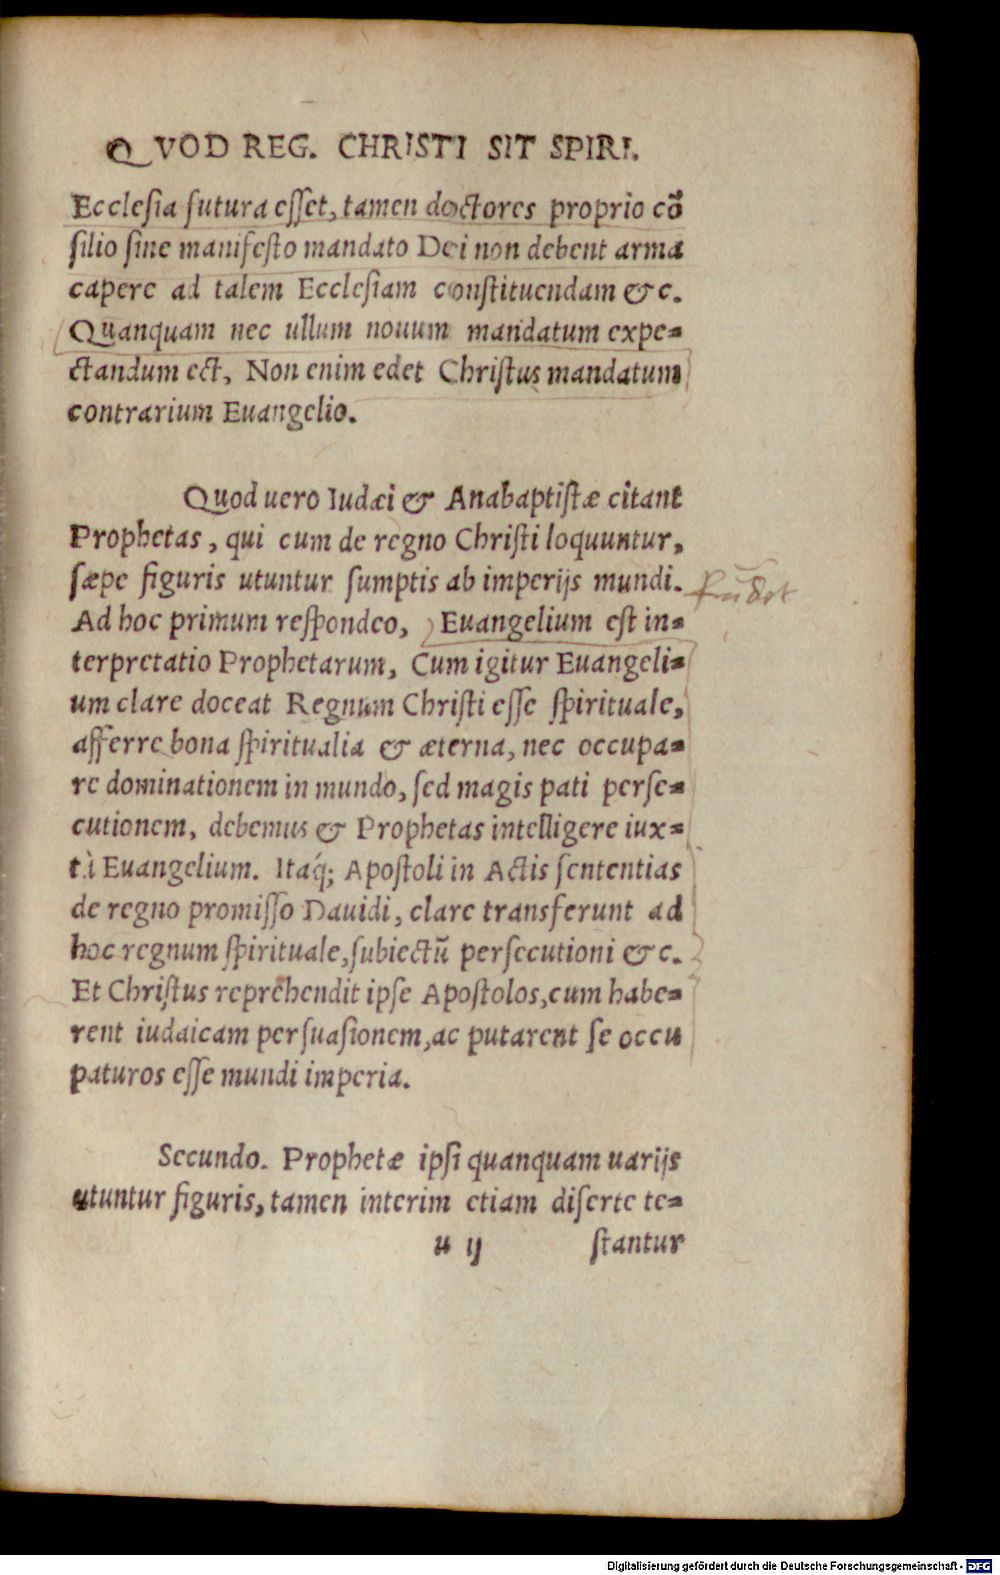 QVOD REG. CHRISTI SIT SPIRI.
Ecclesia futura esset, tamen doctores proprio cõ
silio sine manifesto mandato Dei non debent arma
capere ad talem Ecclesiam constituendam &c.
Quanquam nec ullum nouum mandatum expe=
ctandum ect, Non enim edet Christus mandatum
contrarium Euangelio.
Quod uero Iudæi & Anabaptistæ citant
Prophetas, qui cum de regno Christi loquuntur,
sæpe figuris utuntur sumptis ab imperijs mundi.
Ad hoc primum respondeo, Euangelium est in=
terpretatio Prophetarum, Cum igitur Euangeli=
um clare doceat Regnum Christi esse spirituale,
afferre bona spiritualia & æterna, nec occupa=
re dominationem in mundo, sed magis pati perse=
cutionem, debemus & Prophetas intelligere iux=
tà Euangelium. Itaq́; Apostoli in Actis sententias
de regno promisso Dauidi, clare transferunt ad
hoc regnum spirituale, subiectũ persecutioni &c.
Et Christus reprehendit ipse Apostolos, cum habe=
rent iudaicam persuasionem, ac putarent se occu
paturos esse mundi imperia.
Secundo. Prophetæ ipsi quanquam uarijs
utuntur figuris, tamen interim etiam diserte te=
u ij stantur
Digitalisierung gefördert durch die Deutsche Forschungsgemeinschaft - DFG